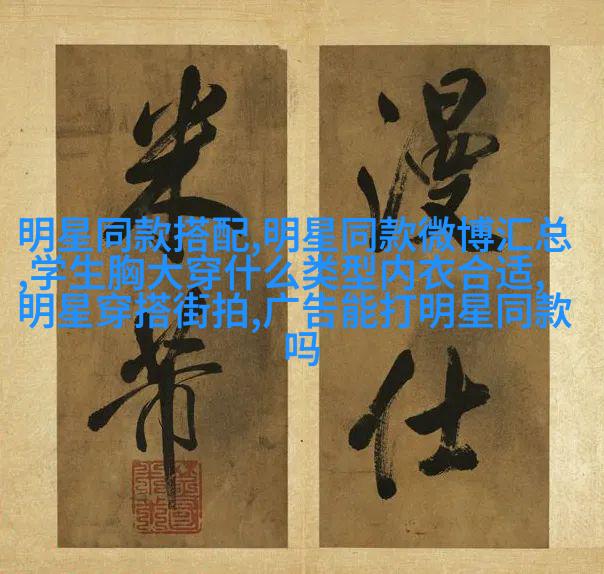 明星同款搭配,明星同款微博汇总
,学生胸大穿什么类型内衣合适,
明星穿搭街拍,广告能打明星同款
吗
漫仕
米芾